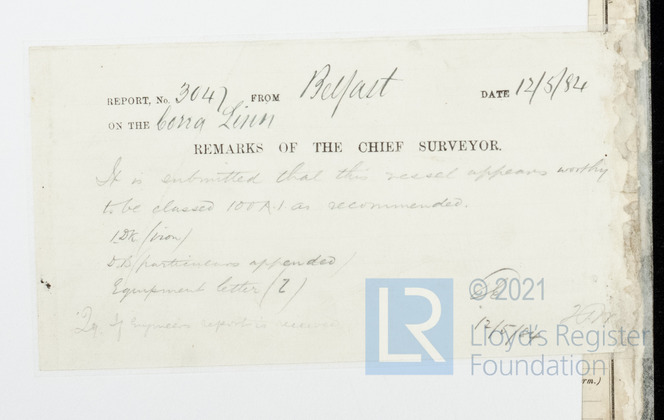 REPORT, No. 3047 FROM Belfast DATE 12/5/84
ON THE Corra Linn
REMARKS OF THE CHIEF SURVEYOR.
It is submitted that this vessel appears worthy
to be classed 100A.1 as recommended.
1 DK (iron)
D.B (particulars appended)
Equipment letter (Z)
If Engineers report is
12/5/84
© 2021
LR
Lloyd's Register
Foundation
rm.)